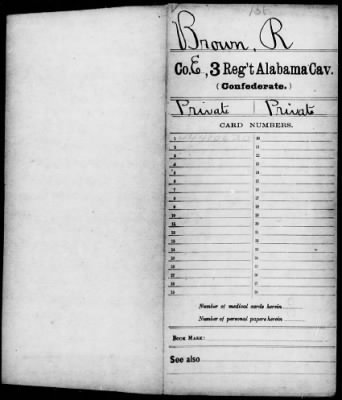 Brown, R
Co. E, 3 Reg't Alabama Cav.
(Confederate.)
Private | Private
CARD NUMBERS.
1 20
2 21
3 22
4 23
5 24
6 25
7 26
8 27
9 28
10 29
11 30
12 31
13 32
14 33
15 34
16 35
17 36
18 37
19 38
Number of medical cards herein
Number of personal papers herein
BOOK MARK:
See also